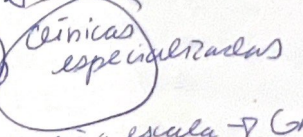 clínicas
especializadas
escala →